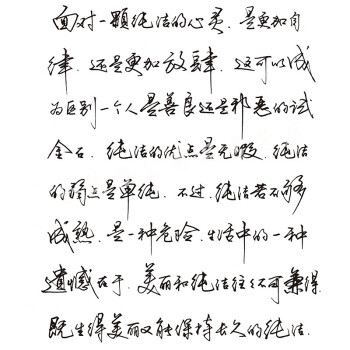 面对一颗纯洁的心灵、是更加自
律、还是更加放肆、这可以成
为区别一个人是善良还是邪恶的试
金石、纯洁的优点是无暇、纯洁
的弱点是单纯、不过、纯洁若不够
成熟、是一种危险、生活中的一种
遗憾在于、美丽和纯洁往往不可兼得
既生得美丽又能保持长久的纯洁、